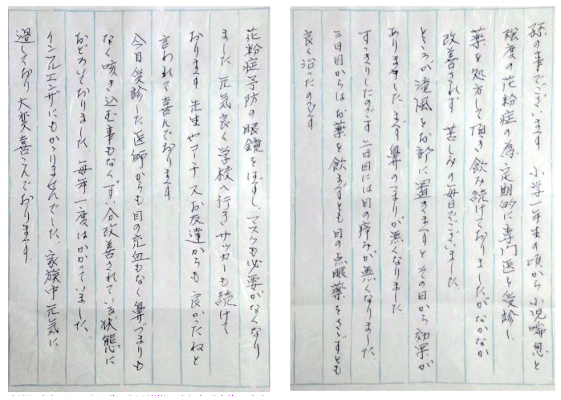 孫の事でございます 小学一年生の頃から 小児喘息と
極度の花粉症の為 定期的に専門医を受診し
薬を処方して頂き飲み続けておりましたがなかなか
改善されず 苦しみの毎日でございました
ところが 滝風をお部に置きますと その日から 効果が
ありました まず 鼻のつまりが無くなりました
すっきりしたのです 二日目には目の痒みが無くなりました
三日目からはお薬を飲まずとも 目の点眼薬をささずとも
良く治ったのです
花粉症予防の眼鏡をはずし マスクも必要がなくなり
ました 元気良く学校へ行き サッカーも続けて
おります 先生やコーチ お友達からも 良かったねと
言われて喜んでおります
今日受診した医師からも 目の充血もなく 鼻づまりも
なく 咳き込む事もなく 改善されている状態に
おどろいておりました 毎年一度はかかっていました
インフルエンザにもかかりませんでした 家族中元気に
過しており 大変喜こんでおります